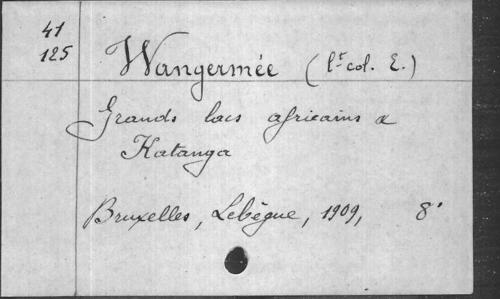 41
125
Wangermée (lt col. E.)
Grands lacs africains &
Katanga
Bruxelles, Lebègue, 1909, 8°